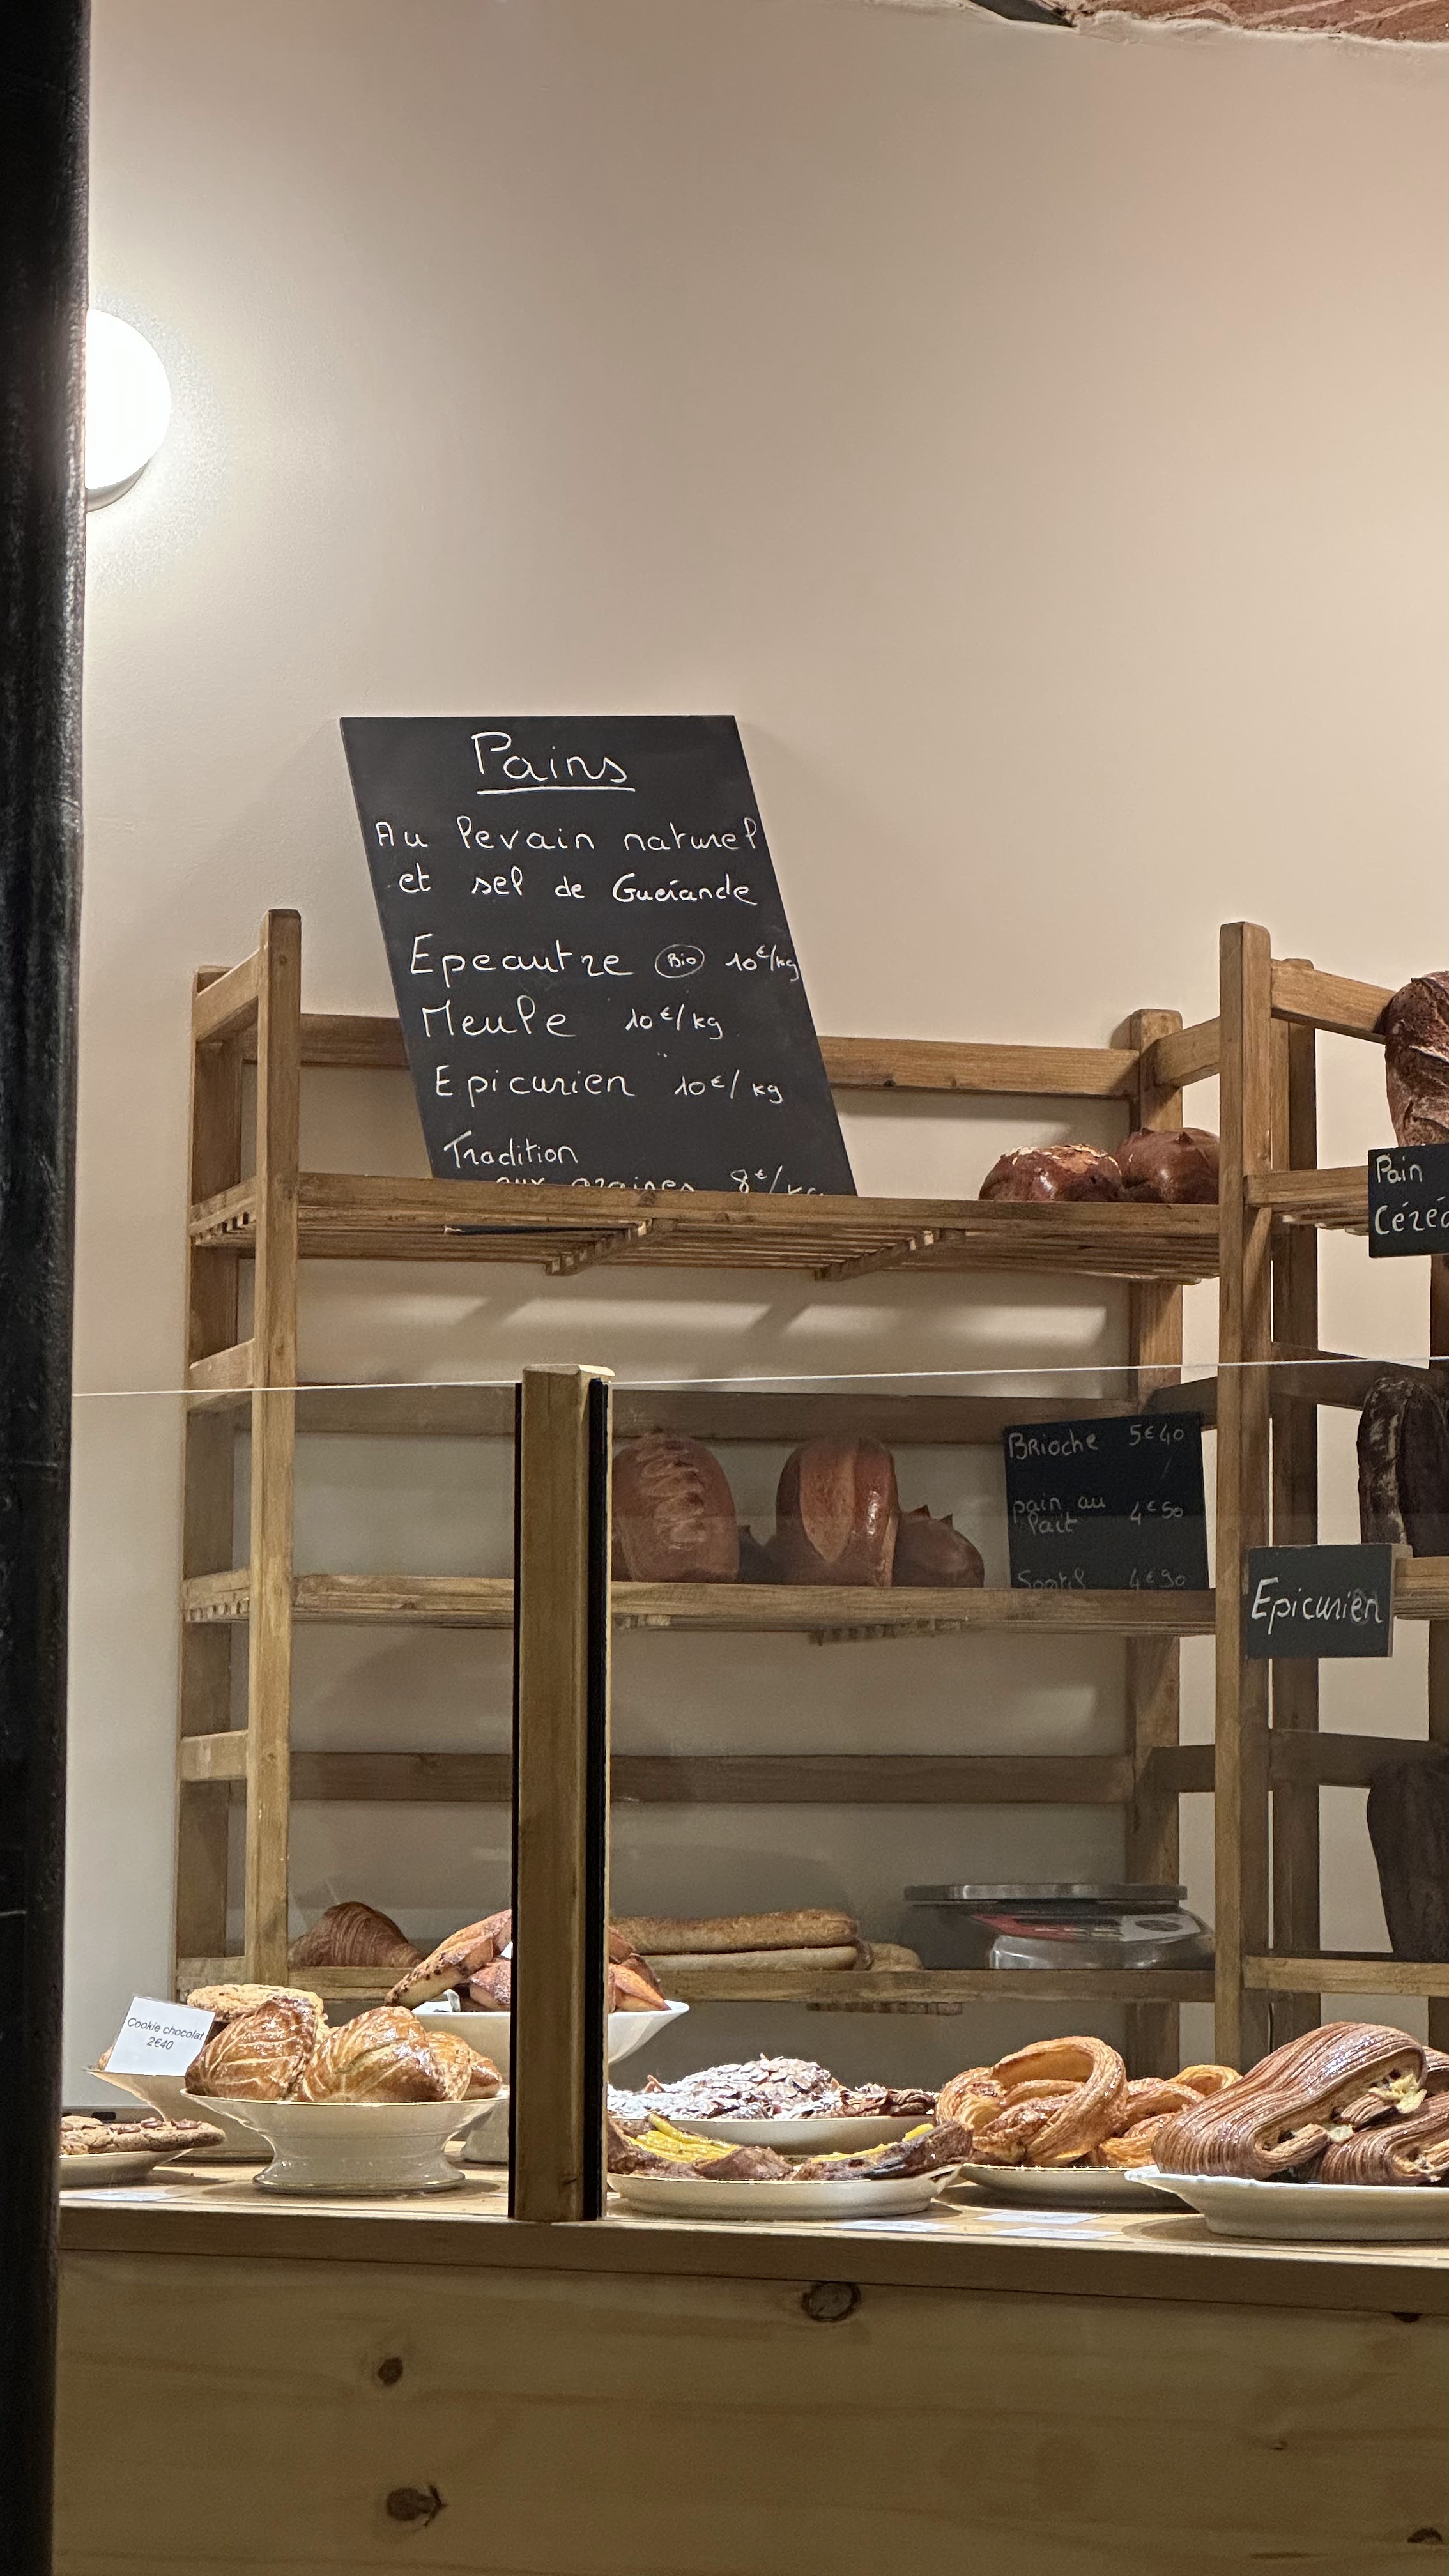 Pains
Au levain naturel
et sel de Guérande
Epeautre Bio 10€/kg
Meule 10€/kg
Epicurien 10€/kg
Tradition
aux graines 8€/kg
Pain
Brioche 5€40
pain au
lait 4€50
4€90
Epicurien
Cookie chocolat
2€40